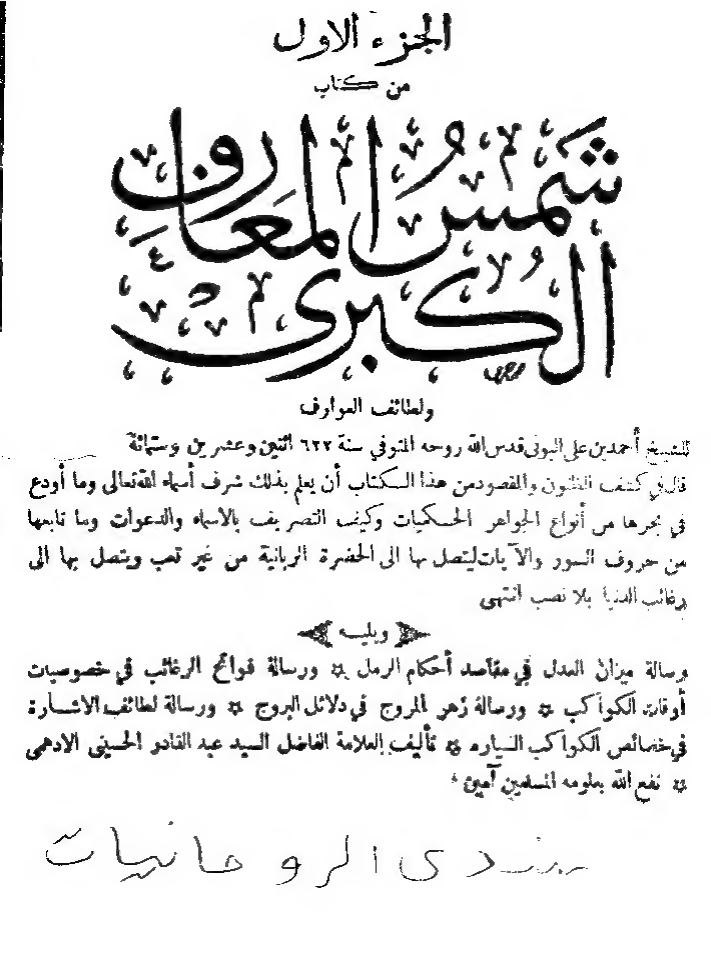 الجزء الاول
من كتاب
شمسُ المعارف
الكبرى
ولطائف العوارف
للشيخ أحمد بن على البونى قدس الله روحه المتوفي سنة ٦٢٢ اثنين وعشرين وستمائة
قال في كشف الظنون والمقصود من هذا الكتاب أن يعلم بذلك شرف أسماء الله تعالى وما أودع
في بحرها من أنواع الجواهر الحكميات وكيف التصريف بالاسماء والدعوات وما تابعها
من حروف السور والآيات ليتصل بها الى الحضرة الربانية من غير تعب ويتصل بها الى
رغائب الدنيا بلا نصب انتهى
ويليه
رسالة ميزان العدل في مقاصد أحكام الرمل ورسالة فواتح الرغائب في خصوصيات
أوقات الكواكب ورسالة زهر المروج في دلائل البروج ورسالة لطائف الاشارة
في خصائص الكواكب السياره تأليف العلامة الفاضل السيد عبد القادر الحسينى الادهمى
نفع الله بعلومه المسلمين آمين
الروحانيات